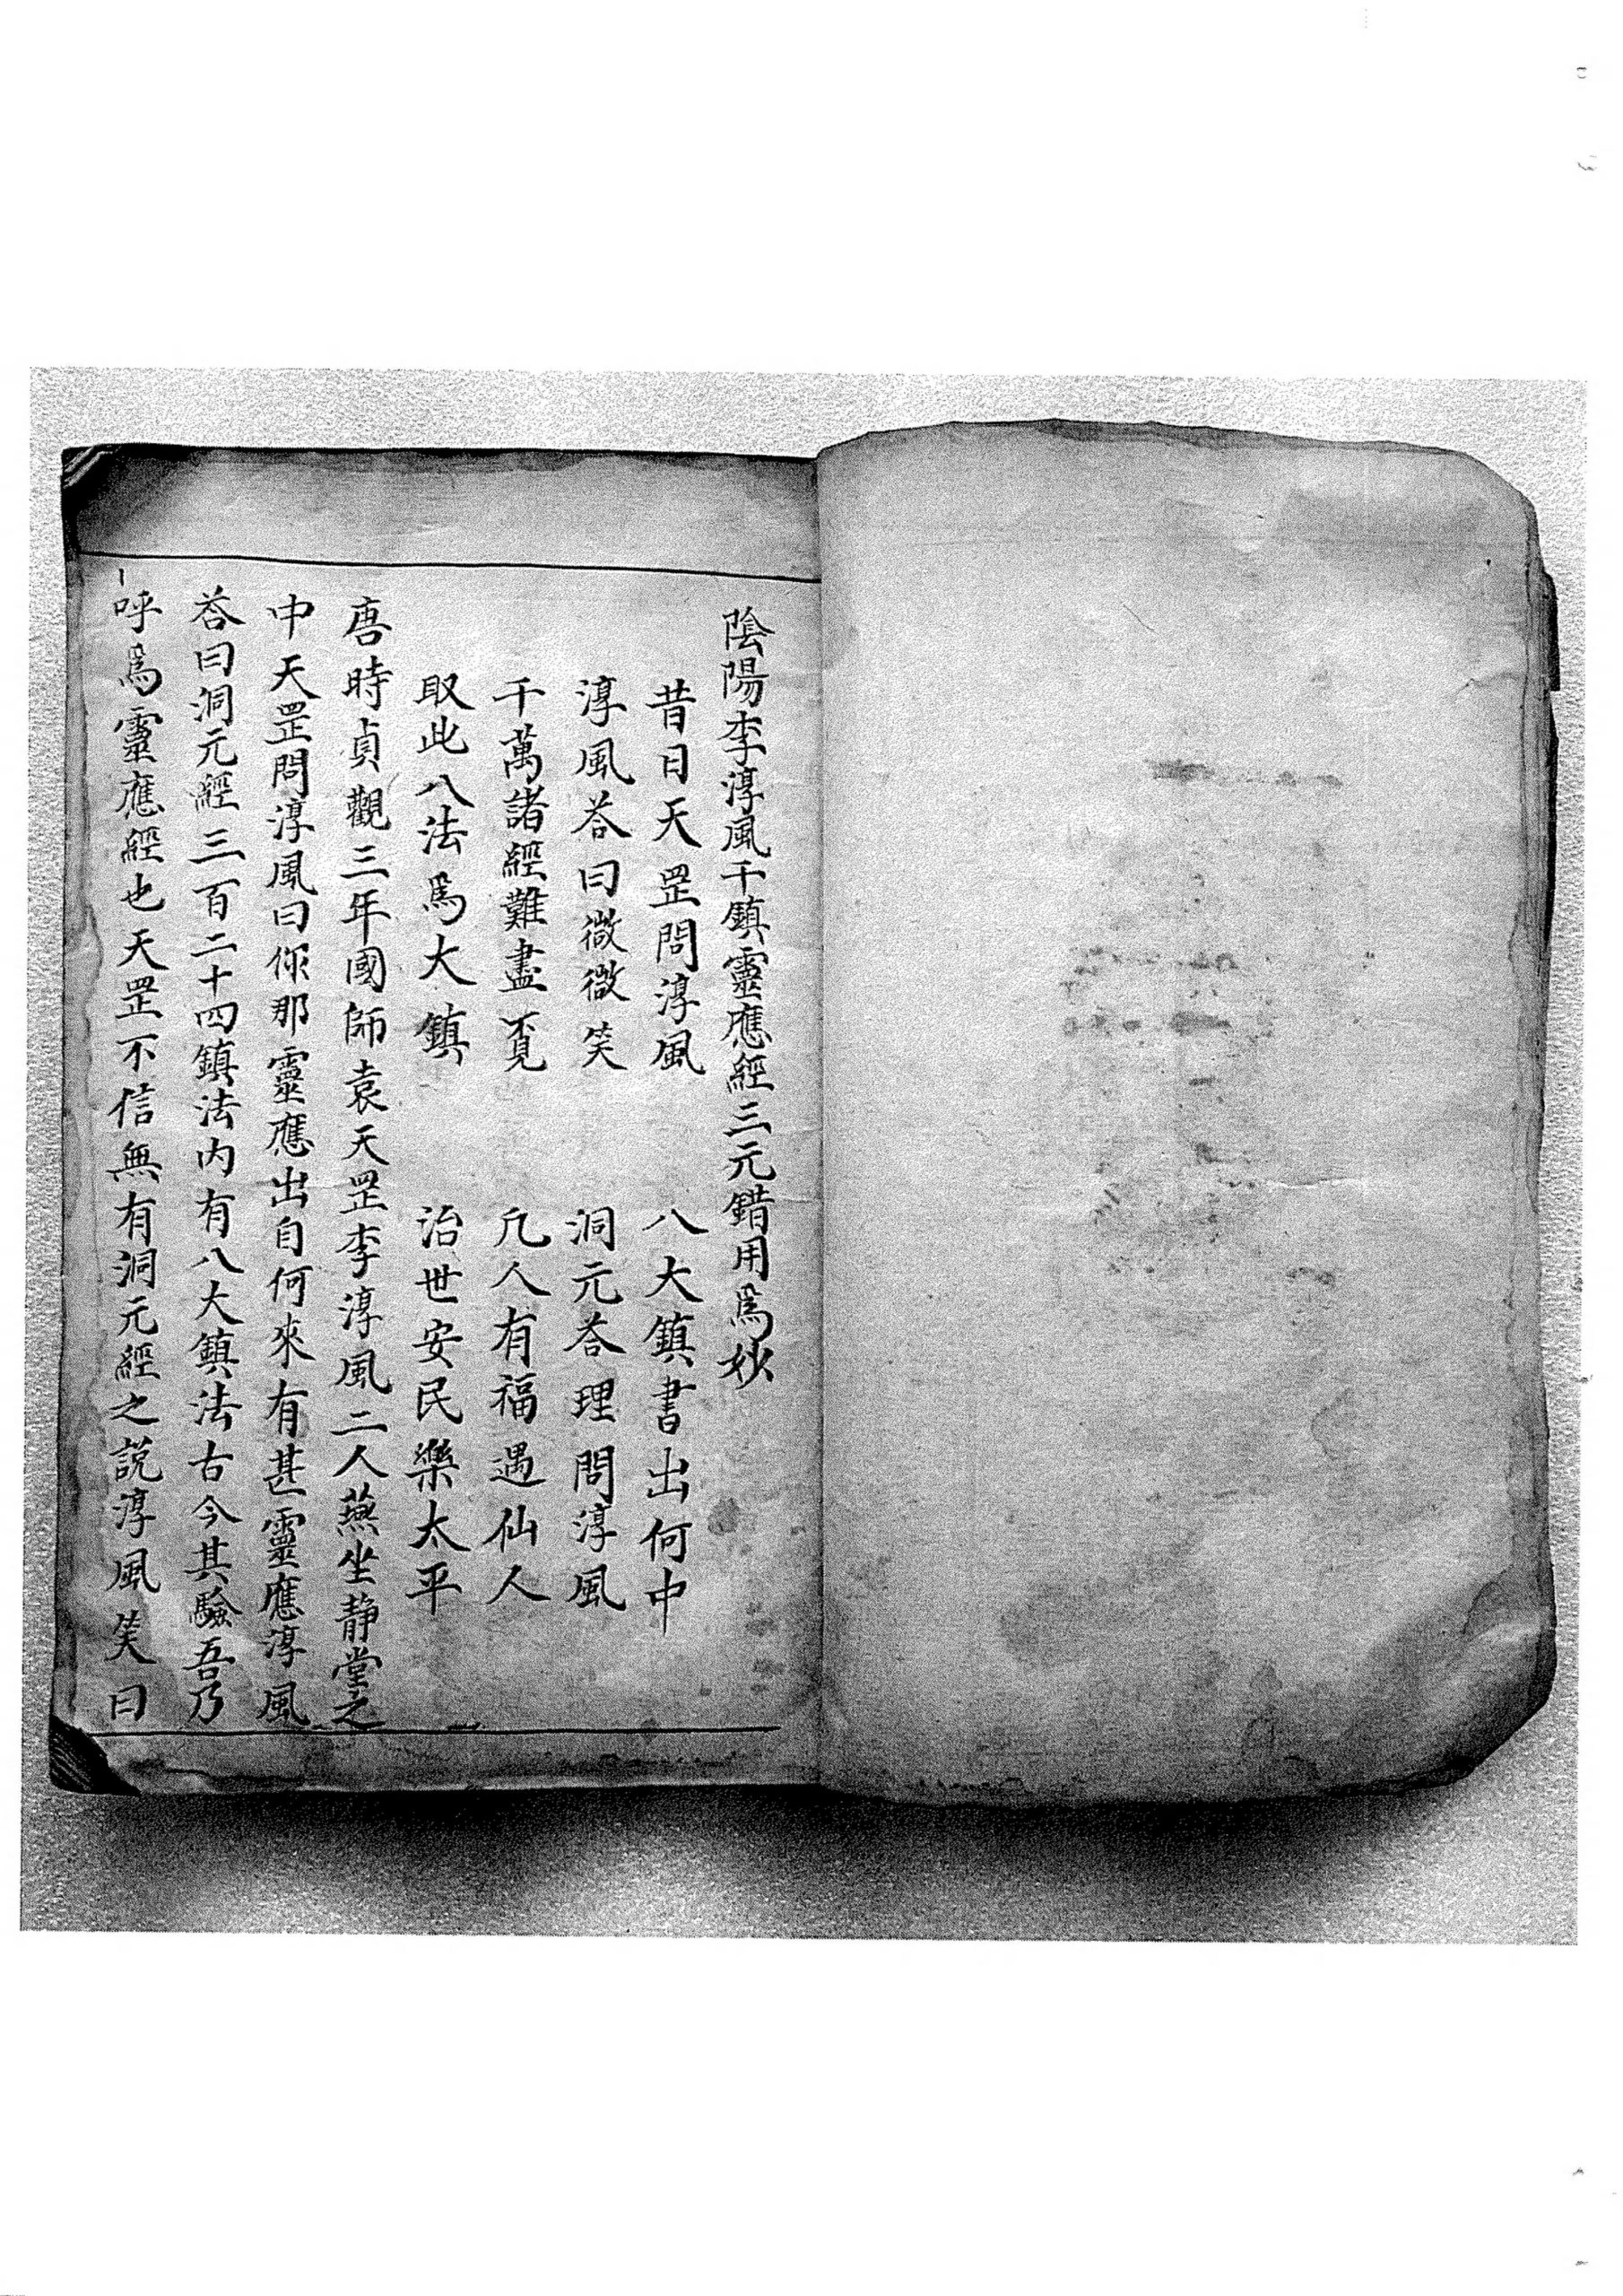 陰陽李淳風千鎮靈應經三元錯用爲妙
昔日天罡問淳風 八大鎮書出何中
淳風荅曰微微笑 洞元荅理問淳風
千萬諸經難盡覔 凢人有福遇仙人
取此八法爲大鎮 治世安民樂太平
唐時貞觀三年國師袁天罡李淳風二人燕坐静堂之
中天罡問淳風曰你那靈應出自何來有甚靈應淳風
荅曰洞元經三百二十四鎮法内有八大鎮法古今其驗吾乃
呼爲靈應經也天罡不信無有洞元經之説淳風笑曰